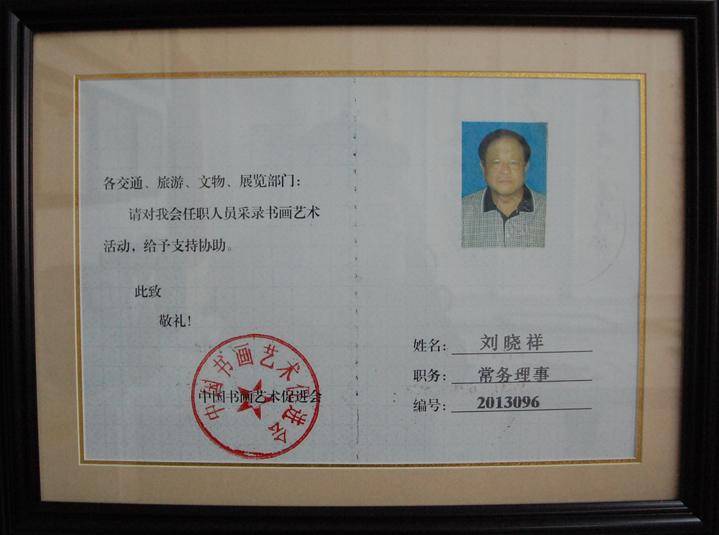 各交通、旅游、文物、展览部门：
请对我会任职人员采录书画艺术
活动，给予支持协助。
此致
敬礼！
中国书画艺术促进会
中国书画艺术促进会
姓名：刘晓祥
职务：常务理事
编号：2013096